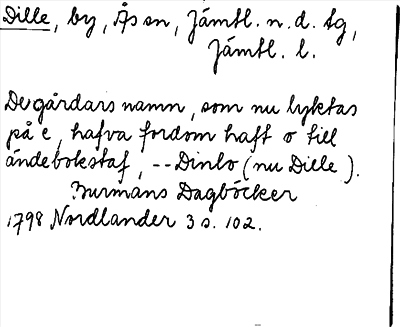 Dille, by, Ås sn, Jämtl. n. d. tg,
Jämtl. l.
De gårdars namn, som nu lyktas
på e, hafva fordom haft o till
ändebokstaf, -- Dinlo (nu Dille).
Burmans Dagböcker
1798 Nordlander 3 s. 102.